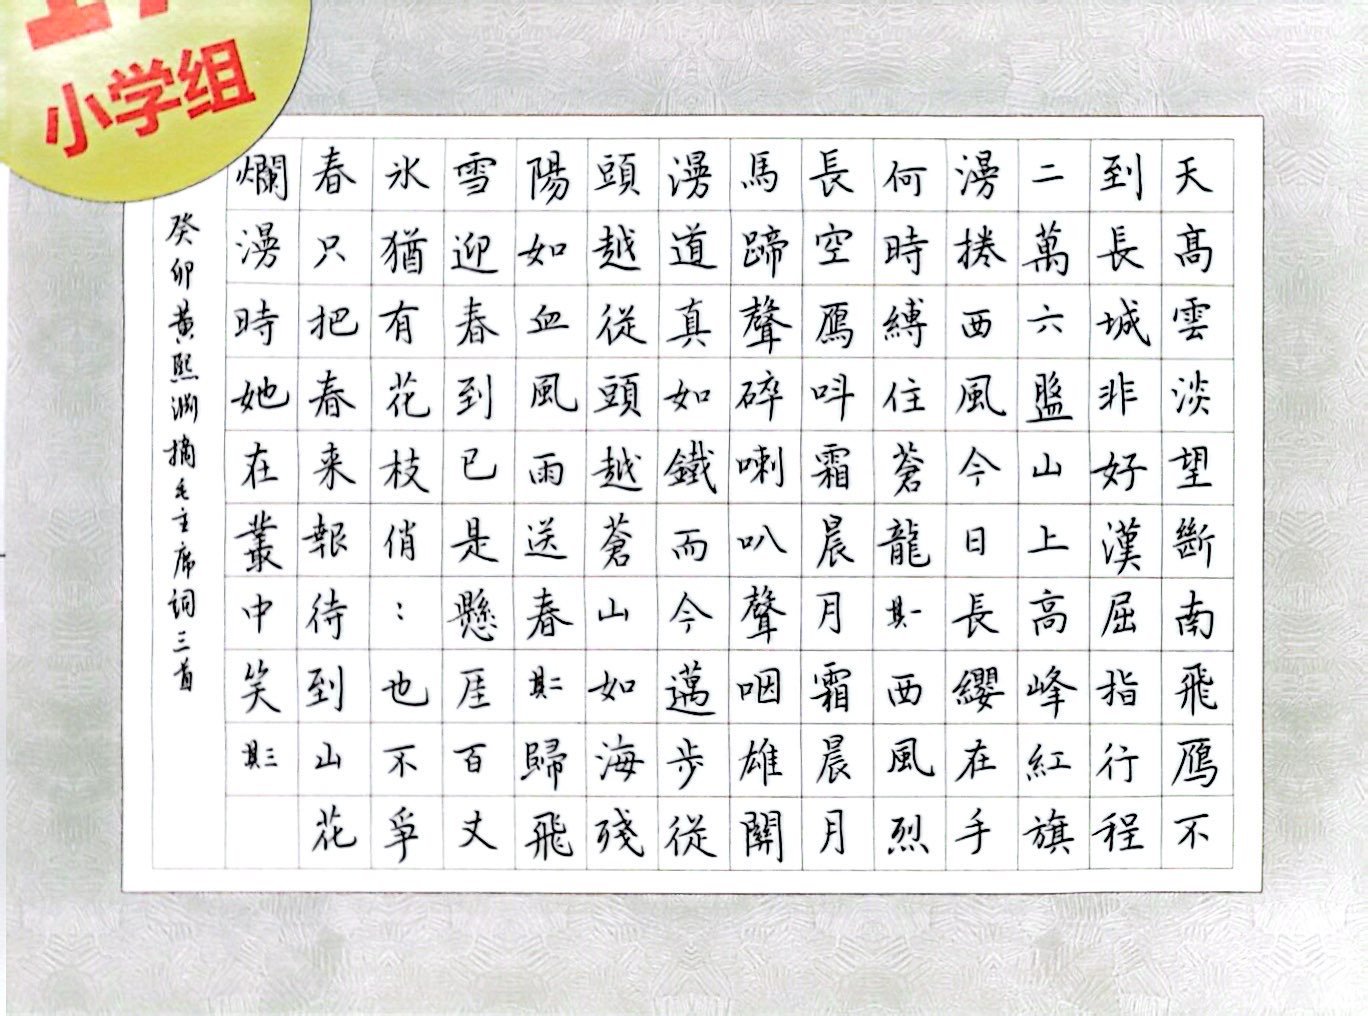 小学组
天高雲淡望斷南飛鴈不
到長城非好漢屈指行程
二萬六盤山上高峰紅旗
漫捲西風今日長纓在手
何時縛住蒼龍其一西風烈
長空鴈呌霜晨月霜晨月
馬蹄聲碎喇叭聲咽雄關
漫道真如鐵而今邁步從
頭越從頭越蒼山如海殘
陽如血風雨送春其二歸飛
雪迎春到已是懸厓百丈
氷猶有花枝俏：也不爭
春只把春来報待到山花
爛漫時她在叢中笑其三
癸卯黄熙渊摘毛主席词三首